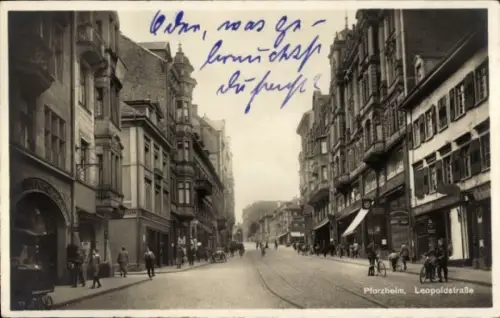 Oder, was ge-
brauchst
Du sonst?
Pforzheim, Leopoldstraße